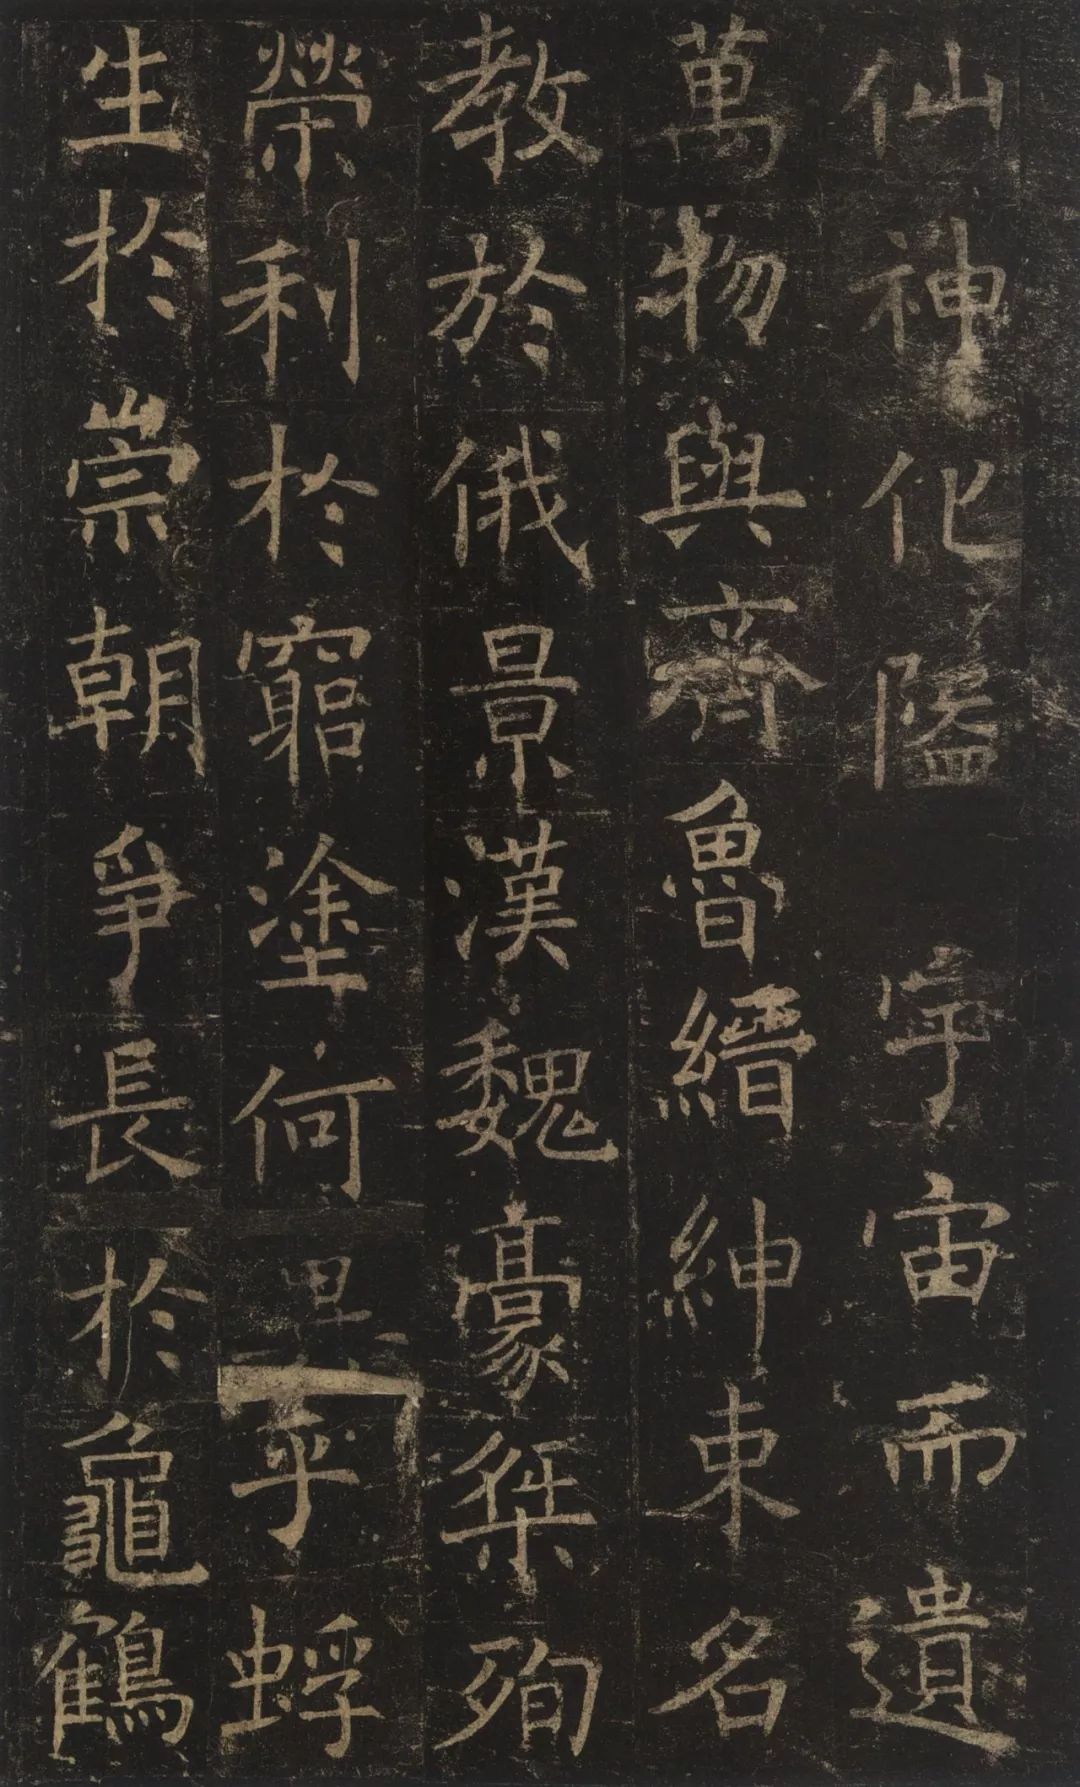 仙神化隘宇宙而遺
萬物與齊魯縉紳束名
教於俄景漢魏豪桀殉
榮利於窮塗何異乎蜉
生於崇朝爭長於龜鶴